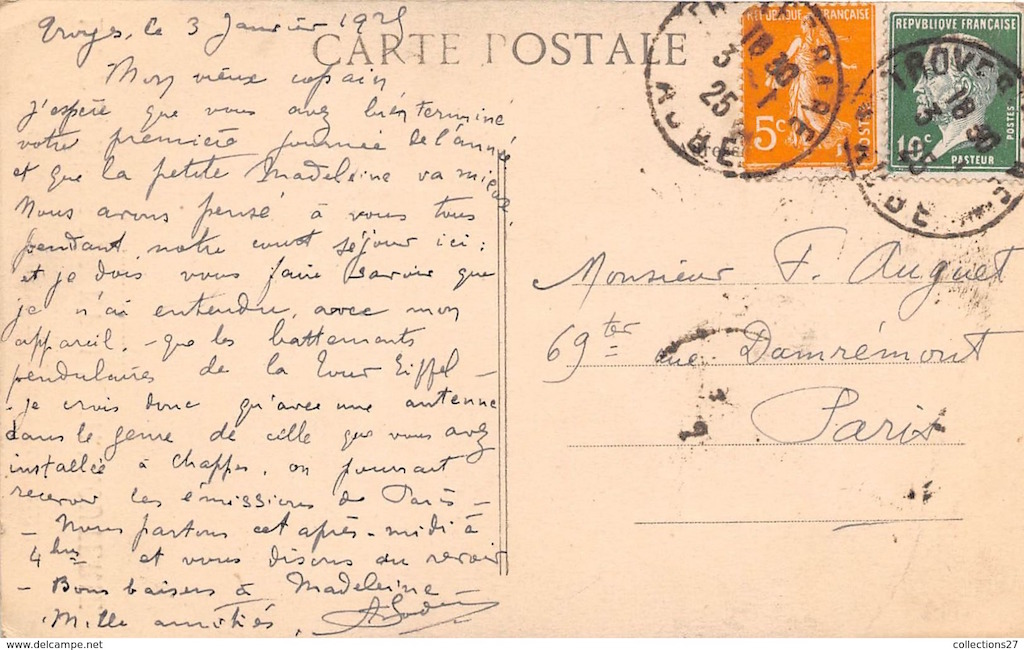 Troyes, le 3 Janvier 1925
CARTE POSTALE
Mon vieux copain
J'espère que vous avez bien terminé
votre première journée de l'année
et que la petite Madeleine va mieux.
Nous avons pensé à vous tous
pendant notre court séjour ici ;
et je dois vous faire savoir que
je n'ai entendu, avec mon
appareil, - que les battements
pendulaires de la Tour Eiffel -
- Je crois donc qu'avec une antenne
dans le genre de celle que vous avez
installée à Chappes, on pourrait
recevoir les émissions de Paris -
- Nous partons cet après-midi à
4 hrs et vous disons au revoir
- Bons baisers à Madeleine
Mille amitiés,
REPUBLIQUE FRANÇAISE
5c
POSTES
REPVBLIQVE FRANÇAISE
10c
POSTES
PASTEUR
TROYES GARE
18 30
3 - 1
25
AUBE
TROYES GARE
18 30
3 - 1
25
AUBE
Monsieur F. Auguet
69 ter rue Damrémont
Paris
www.delcampe.net
collections27